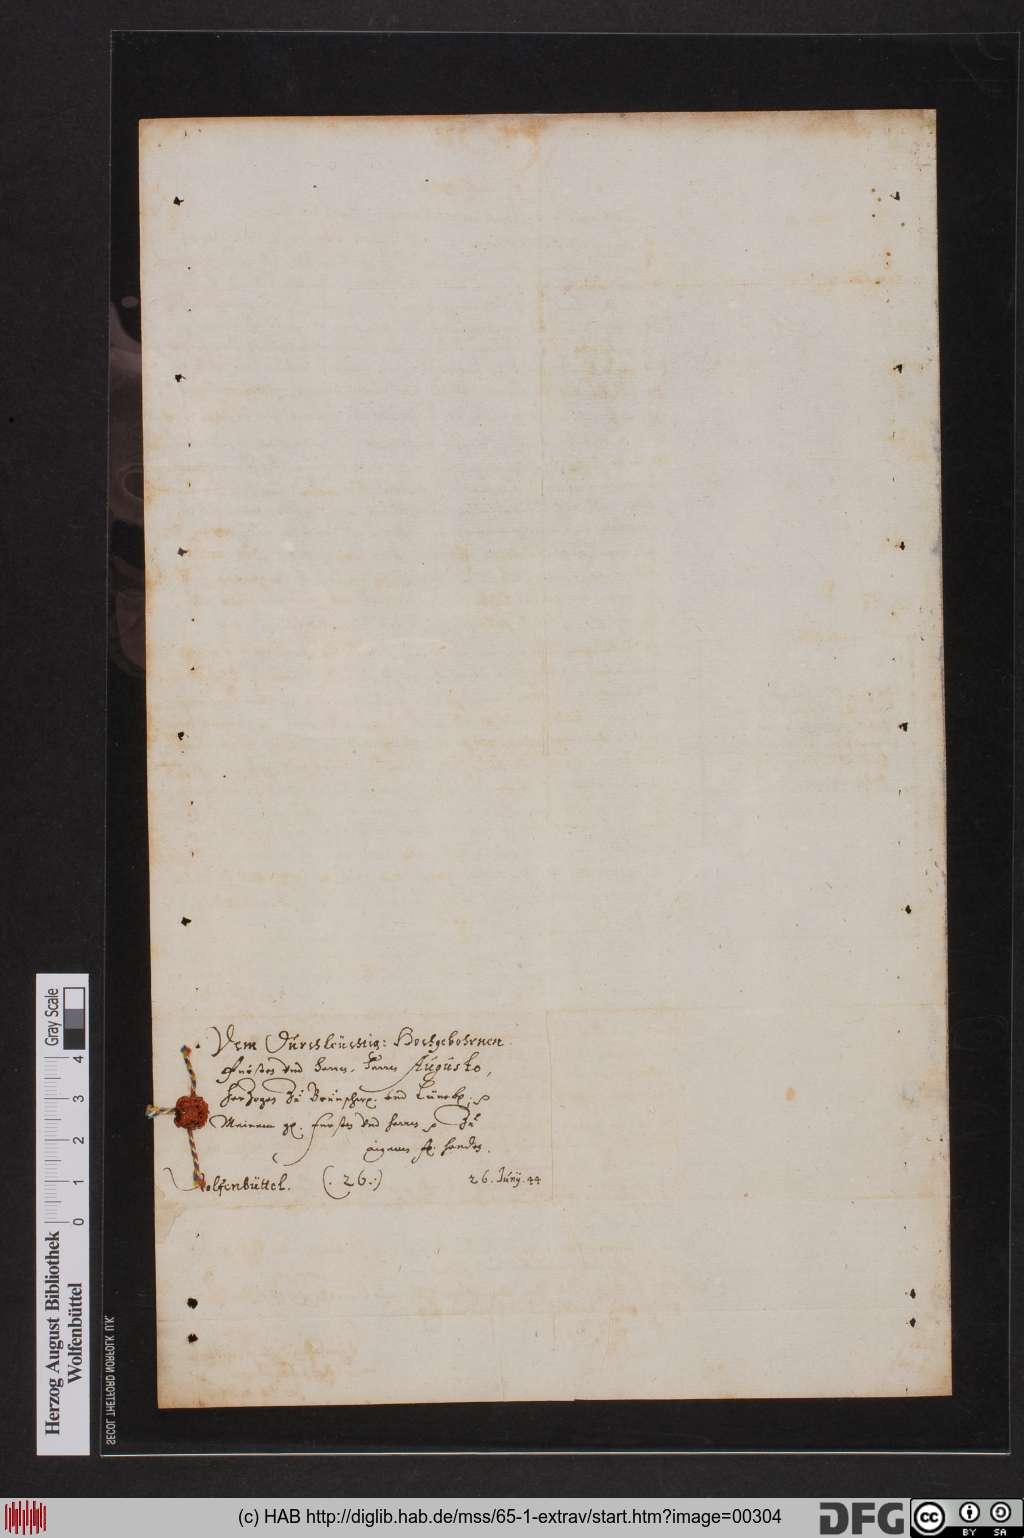 Dem Durchleuchtig: Hochgebohrnen
Fürsten Vnd Herren, Herren Augusto,
Herzogen Zu Braunschw. vnd Lüneb.
Meinem g. Fürsten Vnd Herren Zu
eigenen handen.
Wolfenbüttel. (. 26 .) 26. Junÿ. 44
Herzog August Bibliothek
Wolfenbüttel
0 1 2 3 4
Gray Scale
SECOL THETFORD NORFOLK U.K.
(c) HAB http://diglib.hab.de/mss/65-1-extrav/start.htm?image=00304
DFG
cc
BY SA